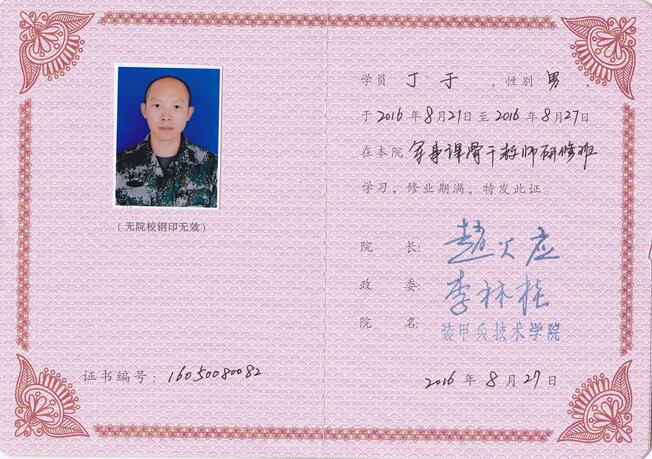 (无院校钢印无效)
证书编号:16050080082
学员 丁于 ,性别 男 ,
于2016年8月21日至2016年8月27日
在本院 军事课骨干教师研修班
学习,修业期满,特发此证。
院 长:
政 委: 李林
院 名: 装甲兵技术学院
2016年8月27日